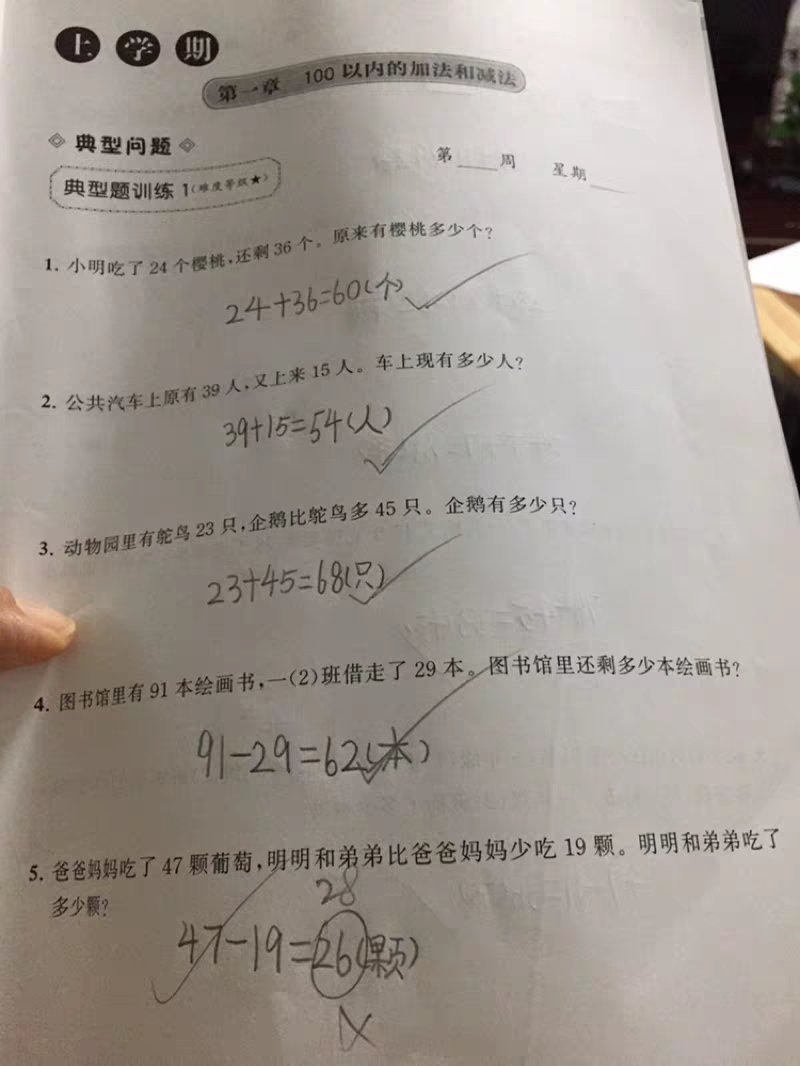 上学期
第一章 100以内的加法和减法
典型问题
第____周 星期____
典型题训练1(难度等级★)
1. 小明吃了24个樱桃,还剩36个。原来有樱桃多少个?
24+36=60(个)
2. 公共汽车上原有39人,又上来15人。车上现有多少人?
39+15=54(人)
3. 动物园里有鸵鸟23只,企鹅比鸵鸟多45只。企鹅有多少只?
23+45=68(只)
4. 图书馆里有91本绘画书,一(2)班借走了29本。图书馆里还剩多少本绘画书?
91-29=62(本)
5. 爸爸妈妈吃了47颗葡萄,明明和弟弟比爸爸妈妈少吃19颗。明明和弟弟吃了
多少颗?
28
47-19=26(颗)